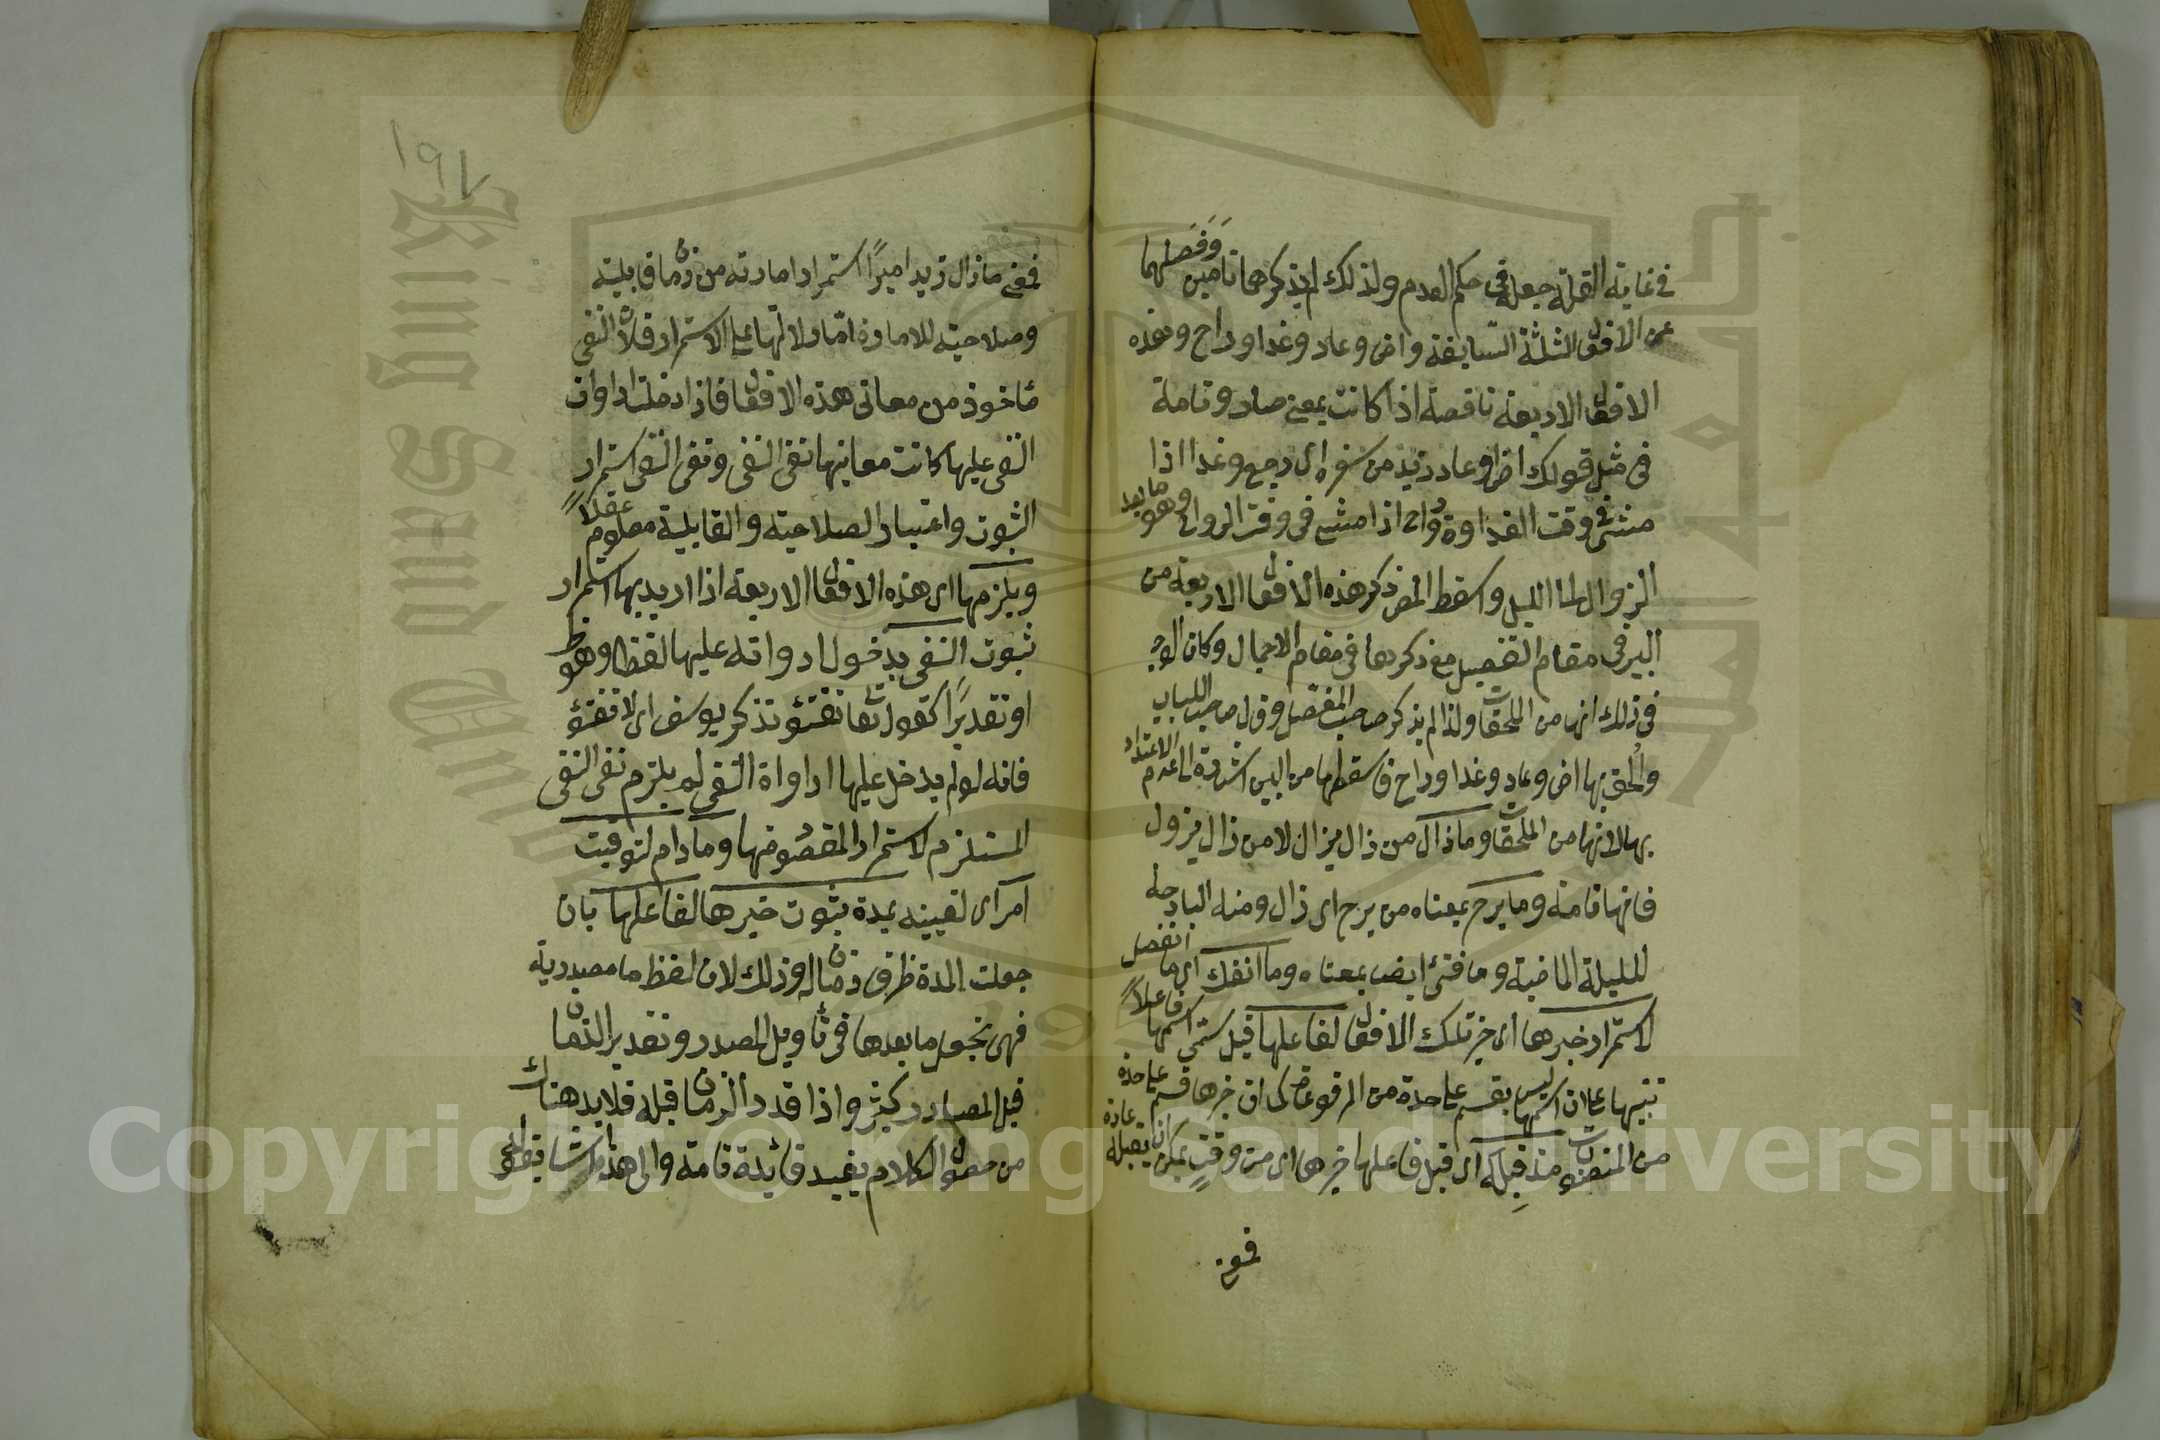 في غاية القلة جعله في حكم العدم ولذلك لم يذكرهما تامين وفصلهما
عن الافعال الثلثة السابقة واض وعاد وغدا وراح وهذه
الافعال الاربعة ناقصة اذا كانت بمعنى صار وتامة
في مثل قولك اض وعاد زيد من سفره اى رجع وغدا اذا
مشى في وقت الغداوة وراح اذا مشى في وقت الرواح وهو ما بعد
الزوال الى الليل واسقط المص ذكر هذه الافعال الاربعة من
البين في مقام التفصيل مع ذكرها في مقام الاجمال وكان الوجه
في ذلك انها من الملحقات ولذا لم يذكر صاحب المفصل وقال صاحب اللباب
والحق بها اض وعاد وغدا وراح فاسقطها من البين اشارة الى عدم الاعتداد
بها لانها من الملحقات وما زال من زال يزال لا من زال يزول
فانها تامة وما برح بمعناه من برح اى زال ومنه البارحة
لليلة الماضية وما فتئ ايضا بمعناه وما انفك اى ما انفصل
لاستمرار خبرها اى خبر تلك الافعال لفاعلها قيل سمى اسمها فاعلاً
تنبيها على ان اسمها ليس بقسم على حدة من المرفوعات كما ان خبرها قسم على حدة
من المنصوبات منذ قبله اى قبل فاعلها خبرها اى من وقت يمكن ان يقبله عادة
فمعنى
١٩٧
فمعنى ما زال زيد اميراً استمرار امارته من زمان قابليته
وصلاحيته للامارة اما دلالتها على الاستمرار فلان النفى
مأخوذ من معانى هذه الافعال فاذا دخلت ادوات
النفى عليها كانت معانيها نفى النفى ونفى النفى استمرار
الثبوت واعتبار الصلاحية والقابلية معلوم عقلاً
ويلزمها اى هذه الافعال الاربعة اذا اريد بها استمرار
ثبوت النفى بدخول ادواته عليها لفظا وهو ظ
او تقديراً كقوله تعالى تفتؤ تذكر يوسف اى لا تفتؤ
فانه لو لم يدخل عليها اداواة النفى لم يلزم نفى النفى
المستلزم لاستمرار المقصود منها وما دام لتوقيت
امر اى تعيينه بمدة ثبوت خبرها لفاعلها بان
جعلت المدة ظرف زمان له وذلك لان لفظ ما مصدرية
فهى تجعل ما بعدها في تأويل المصدر وتقدير الزمان
قبل المصادر كثير واذا قدر الزمان قبله فلا بد هناك
من حصول الكلام يفيد فائدة تامة والى هذا اشار بقوله